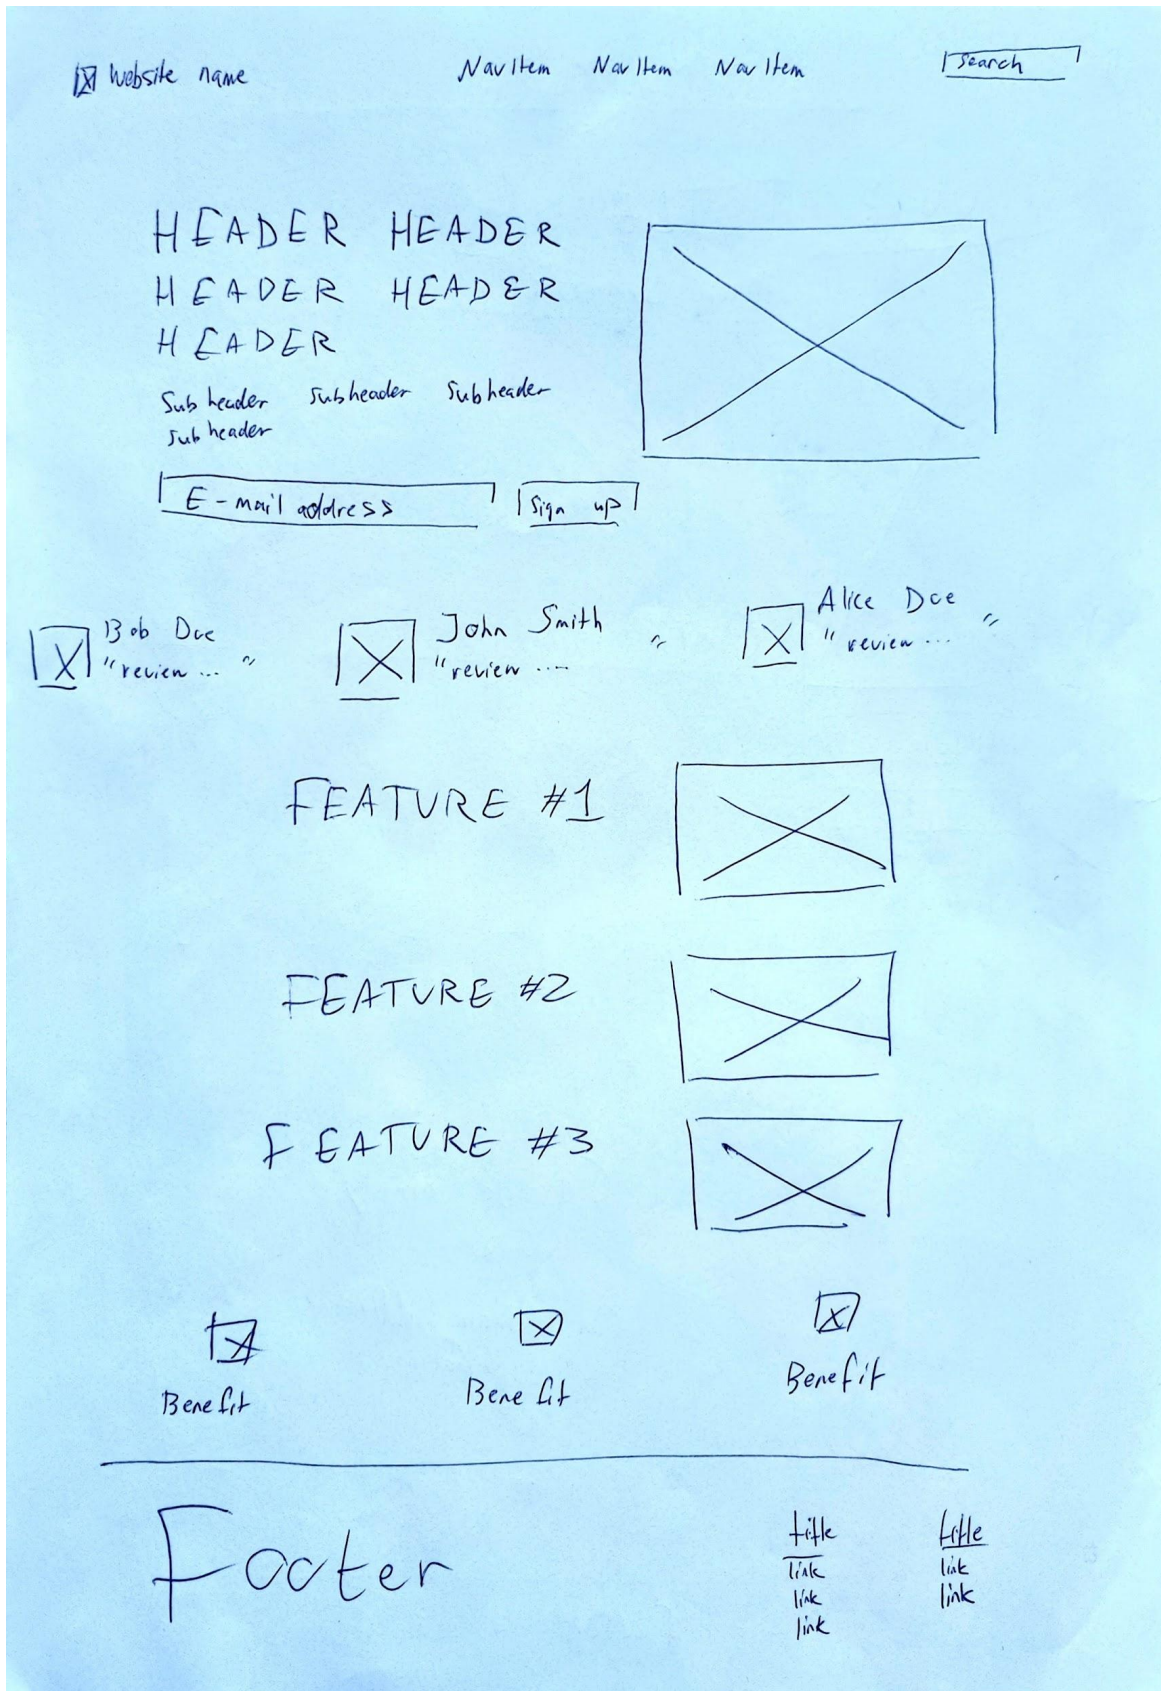 website name
Nav Item Nav Item Nav Item
Search
HEADER HEADER
HEADER HEADER
HEADER
Sub header Subheader Subheader
Sub header
E-mail address
Sign up
Bob Doe
"review ... "
John Smith
"review .... "
Alice Doe
"review ... "
FEATURE #1
FEATURE #2
FEATURE #3
Benefit
Benefit
Benefit
Footer
title
link
link
link
title
link
link